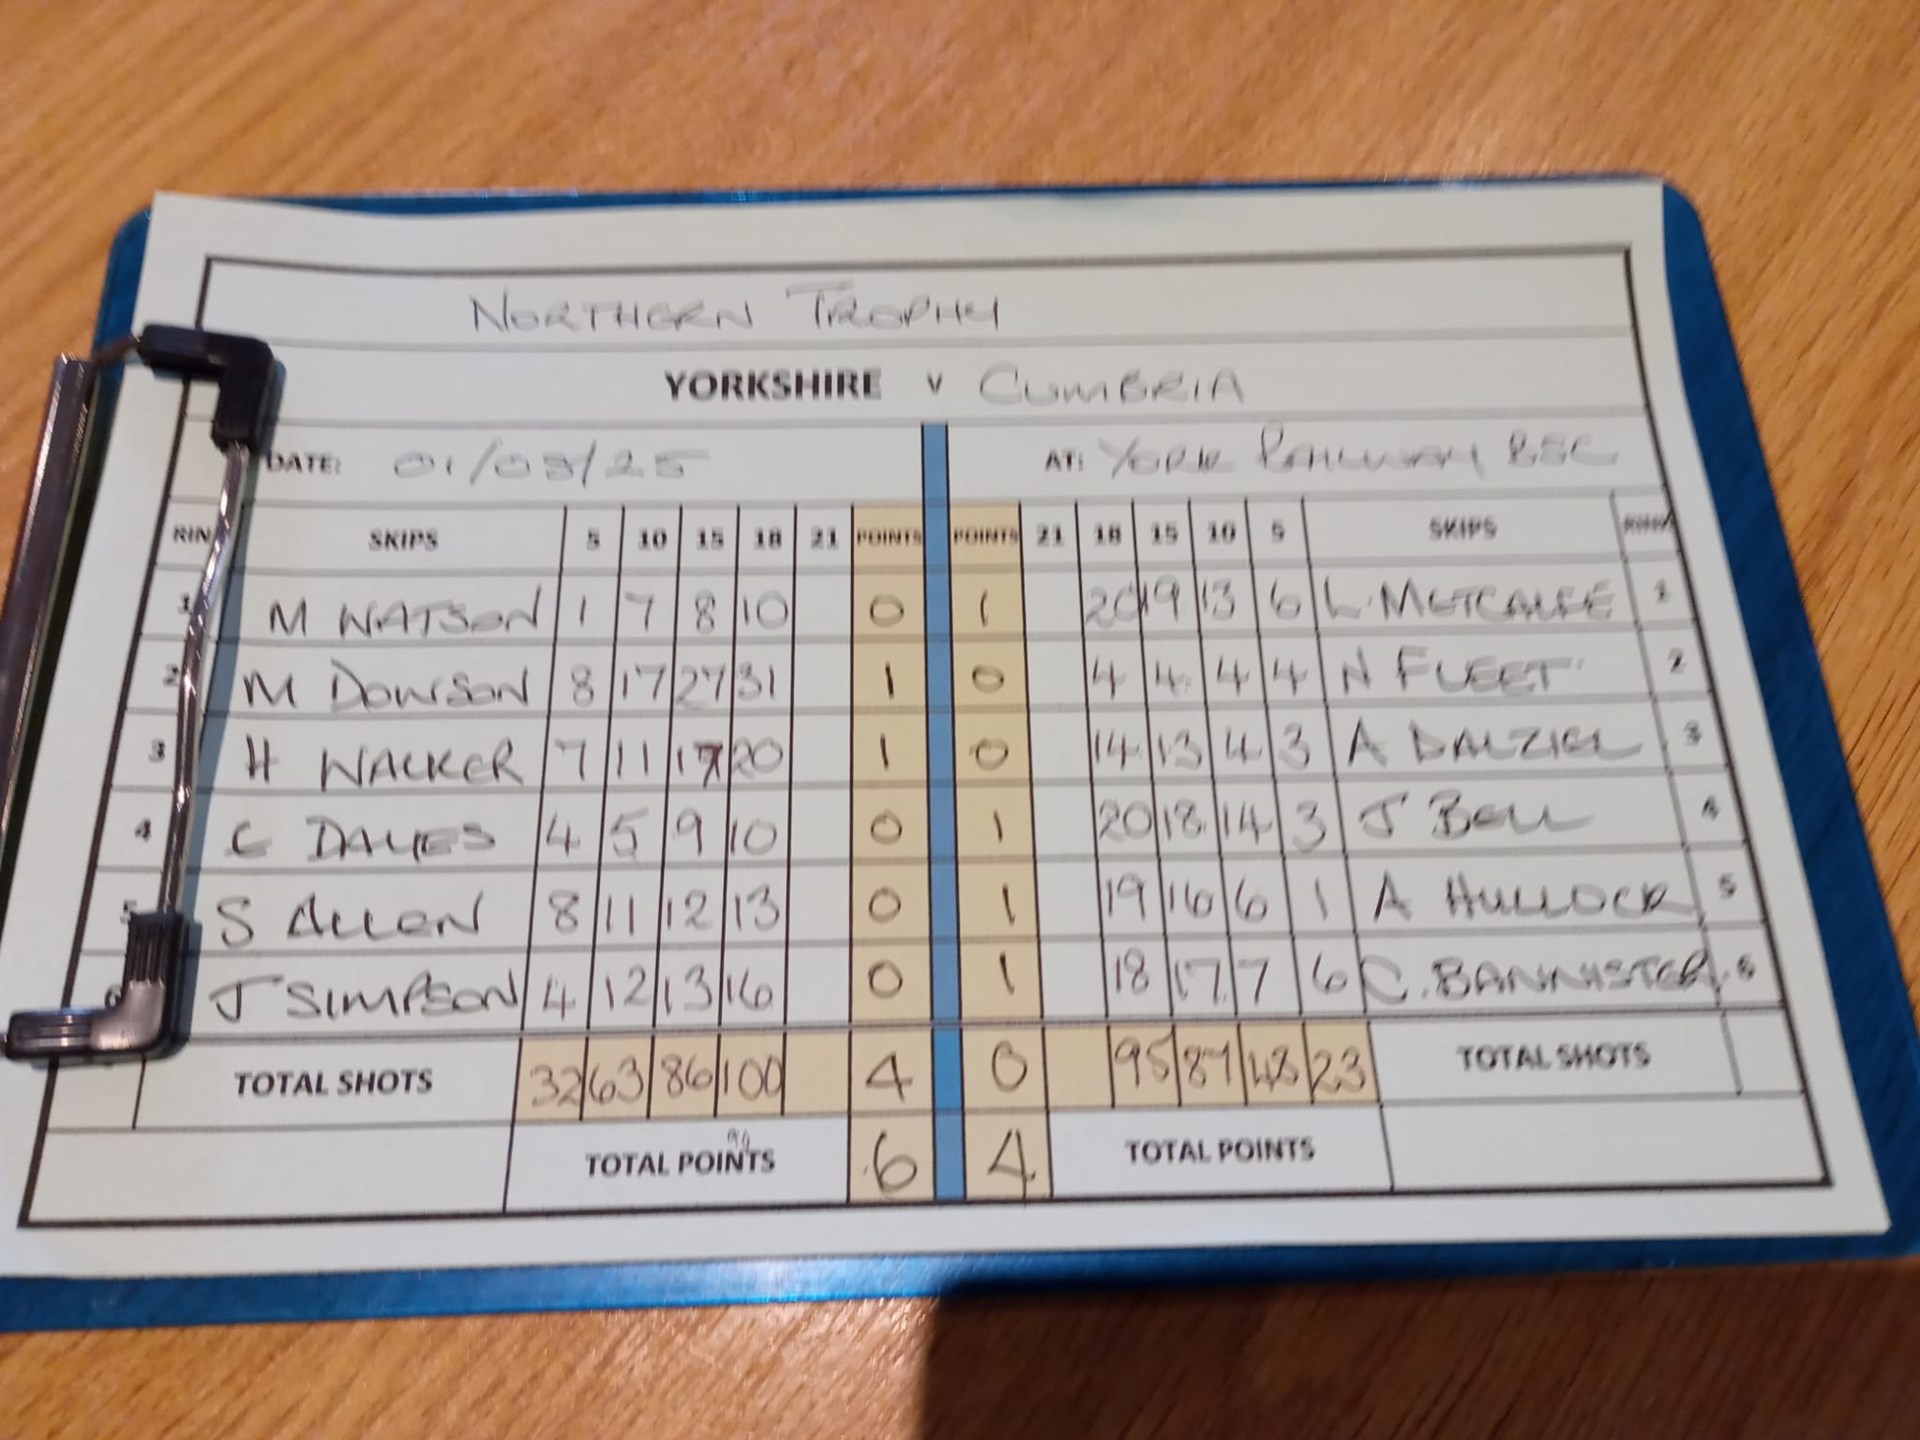 NORTHERN TROPHY
YORKSHIRE V CUMBRIA
DATE: 01/03/25 AT: YORK RAILWAY BSC
RIN SKIPS 5 10 15 18 21 POINTS POINTS 21 18 15 10 5 SKIPS RINK
1 M WATSON 1 7 8 10 0 1 20 19 13 6 L. METCALFE 1
2 M DOWSON 8 17 27 31 1 0 4 4 4 4 N FLEET 2
3 H WALKER 7 11 17 20 1 0 14 13 4 3 A DALZIEL 3
4 C DAVIES 4 5 9 10 0 1 20 18 14 3 J BELL 4
5 S ALLEN 8 11 12 13 0 1 19 16 6 1 A HULLOCK 5
6 J SIMPSON 4 12 13 16 0 1 18 17 7 6 C. BANNISTER 6
TOTAL SHOTS 32 63 86 100 4 0 95 87 48 23 TOTAL SHOTS
TOTAL POINTS 6 4 TOTAL POINTS